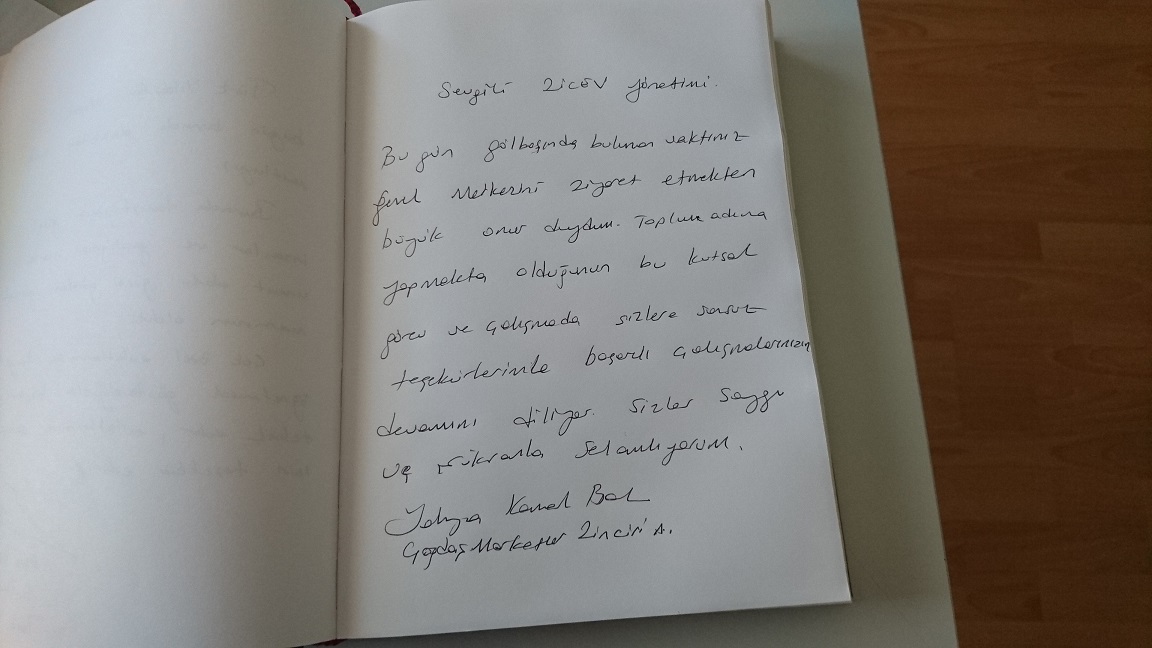 Sevgili ZİCEV Yönetimi.
Bu gün gölbaşında bulunan vakfınız
Genel Merkezini ziyaret etmekten
büyük onur duydum. Toplum adına
yapmakta olduğunun bu kutsal
görev ve çalışmada sizlere sonsuz
teşekürlerimle başarılı çalışmalarınızın
devamını diliyor. Sizleri Saygı
ve şükranla selamlıyorum.
Yahya Kemal Bal
Çağdaş Marketler Zinciri A.